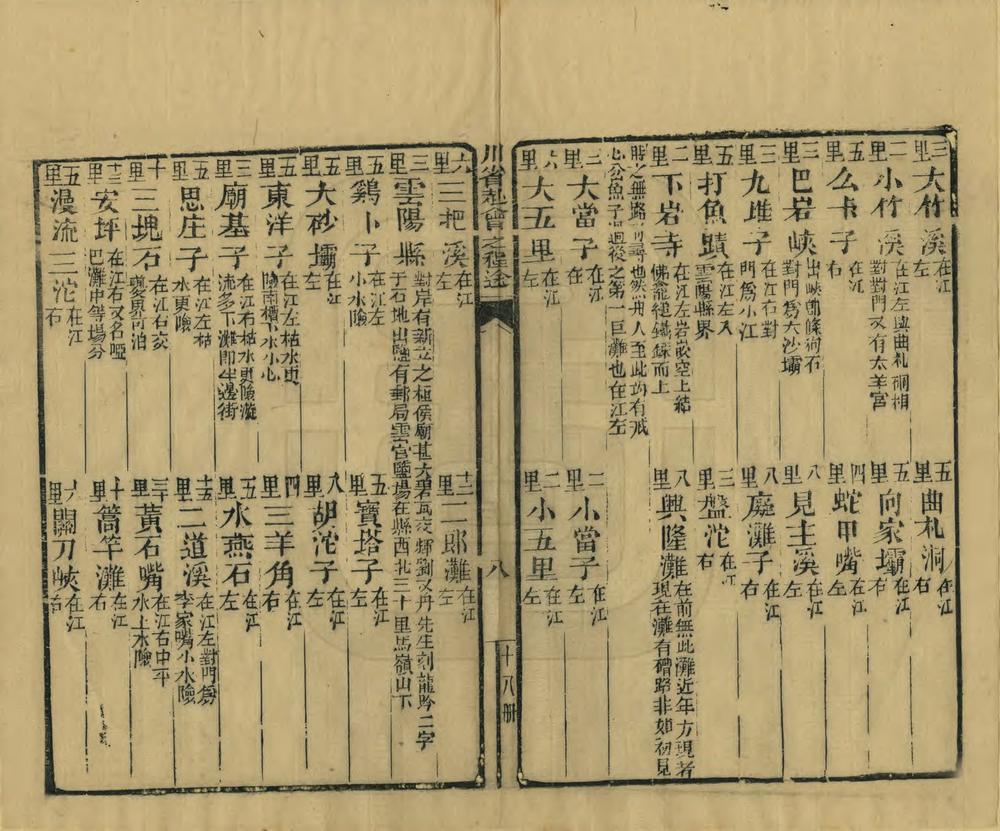 三里大竹溪在江左
五里曲札洞在江右
二里小竹溪在江左與曲札洞相對對門又有太羊宮
五里向家壩在江右
五里么卡子在江右
四里蛇甲嘴在江左
三里巴岩峽出峽卽條狗石對門爲大沙壩
八里見主溪在江左
三里九堆子在江右對門爲小江
八里廢灘子在江右
五里打魚蹟在江左入雲陽縣界
三里盤沱在江右
二里下岩寺在江左岩嵌空上結佛龕縋鐵鎖而上
八里興隆灘在前無此灘近年方現者現在灘有礌路非如初見
時之無路可尋也然舟人至此尚有戒心分魚子迴後之第一巨灘也在江左
二里大當子在江左
二里小當子在江左
六里大五里在江左
二里小五里在江左
川省赴會之程途
八
十八册
六里三把溪在江左
十二里二郎灘在江左
三里雲陽縣對岸有新立之桓侯廟甚大碧瓦交輝劉又丹先生刻龍吟二字于石地出鹽有郵局雲官鹽場在縣西北三十里馬嶺山下
五里鷄卜子在江左小水險
五里寶塔子在江左
五里大砂壩在江左
八里胡沱子在江左
五里東洋子在江左枯水更險南槽下水小心
四里三羊角在江右
三里廟基子在江右枯水更險漩流多下灘卽半邊街
五里水燕石在江左
五里思庄子在江左枯水更險
十五里二道溪在江左對門爲李家嘴小水險
十里三塊石在江右交夔界可泊
三十里黃石嘴在江右中平水上水險
十二里安坪在江右又名啞巴灘中等場分
十里篙竿灘在江右
五里漫流三沱在江右
六里關刀峽在江右